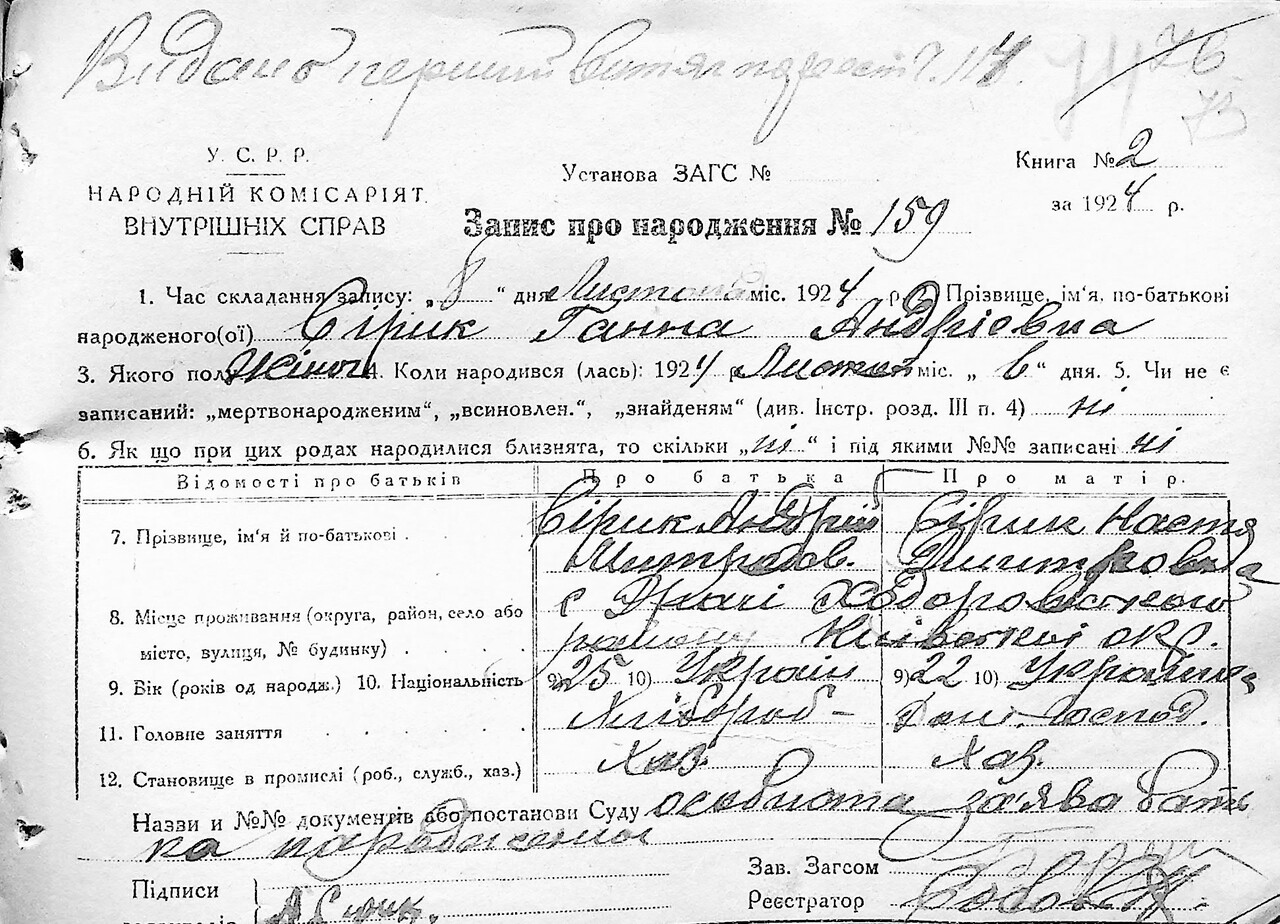 Видано перший витяг по реєстр. Ч. 117.
76
73
У. С. Р. Р.
НАРОДНІЙ КОМІСАРІЯТ
ВНУТРІШНІХ СПРАВ
Установа ЗАГС №
Книга № 2
за 1924 р.
Запис про народження № 159
1. Час складання запису: „8“ дня Листопад міс. 1924 р. 2. Прізвище, ім'я, по-батькові
народженого(ої) Сірик Ганна Андрієвна
3. Якого полу Жіноч 4. Коли народився (лась): 1924 р. Листоп міс. „6“ дня. 5. Чи не є
записаний: „мертвонародженим“, „всиновлен.“, „знайденям“ (див. Інстр. розд. III п. 4) ні
6. Як що при цих родах народилися близнята, то скільки „ні“ і під якими №№ записані ні
Відомості про батьків Про батька Про матір.
7. Прізвище, ім'я й по-батькові . Сірик Андрій Сірик Настя
Митроф. Дмитровна
8. Місце проживання (округа, район, село або с Ходоровського
місто, вулиця, № будинку) . району Київської окр.
9. Вік (років од народж.) 10. Національність 9) 25 10) Україн 9) 22 10) Українка
11. Головне заняття Хлібороб- Дом. Господ.
12. Становище в промислі (роб., служб., хаз.) Хаз. Хаз.
Назви и №№ документів або постанови Суду особиста за'ява бать
ка народженої
Зав. Загсом
Підписи А Сирик.
Реєстратор